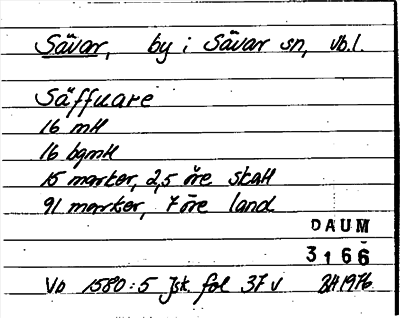 Sävar, by i Sävar sn, Vb.l.
Säffuare
16 mtl
16 bgmtl
15 marker, 2,5 öre skatt
91 marker, 7 öre land
DAUM
3166
Vb 1580:5 Jsk fol 37 v BH 1976